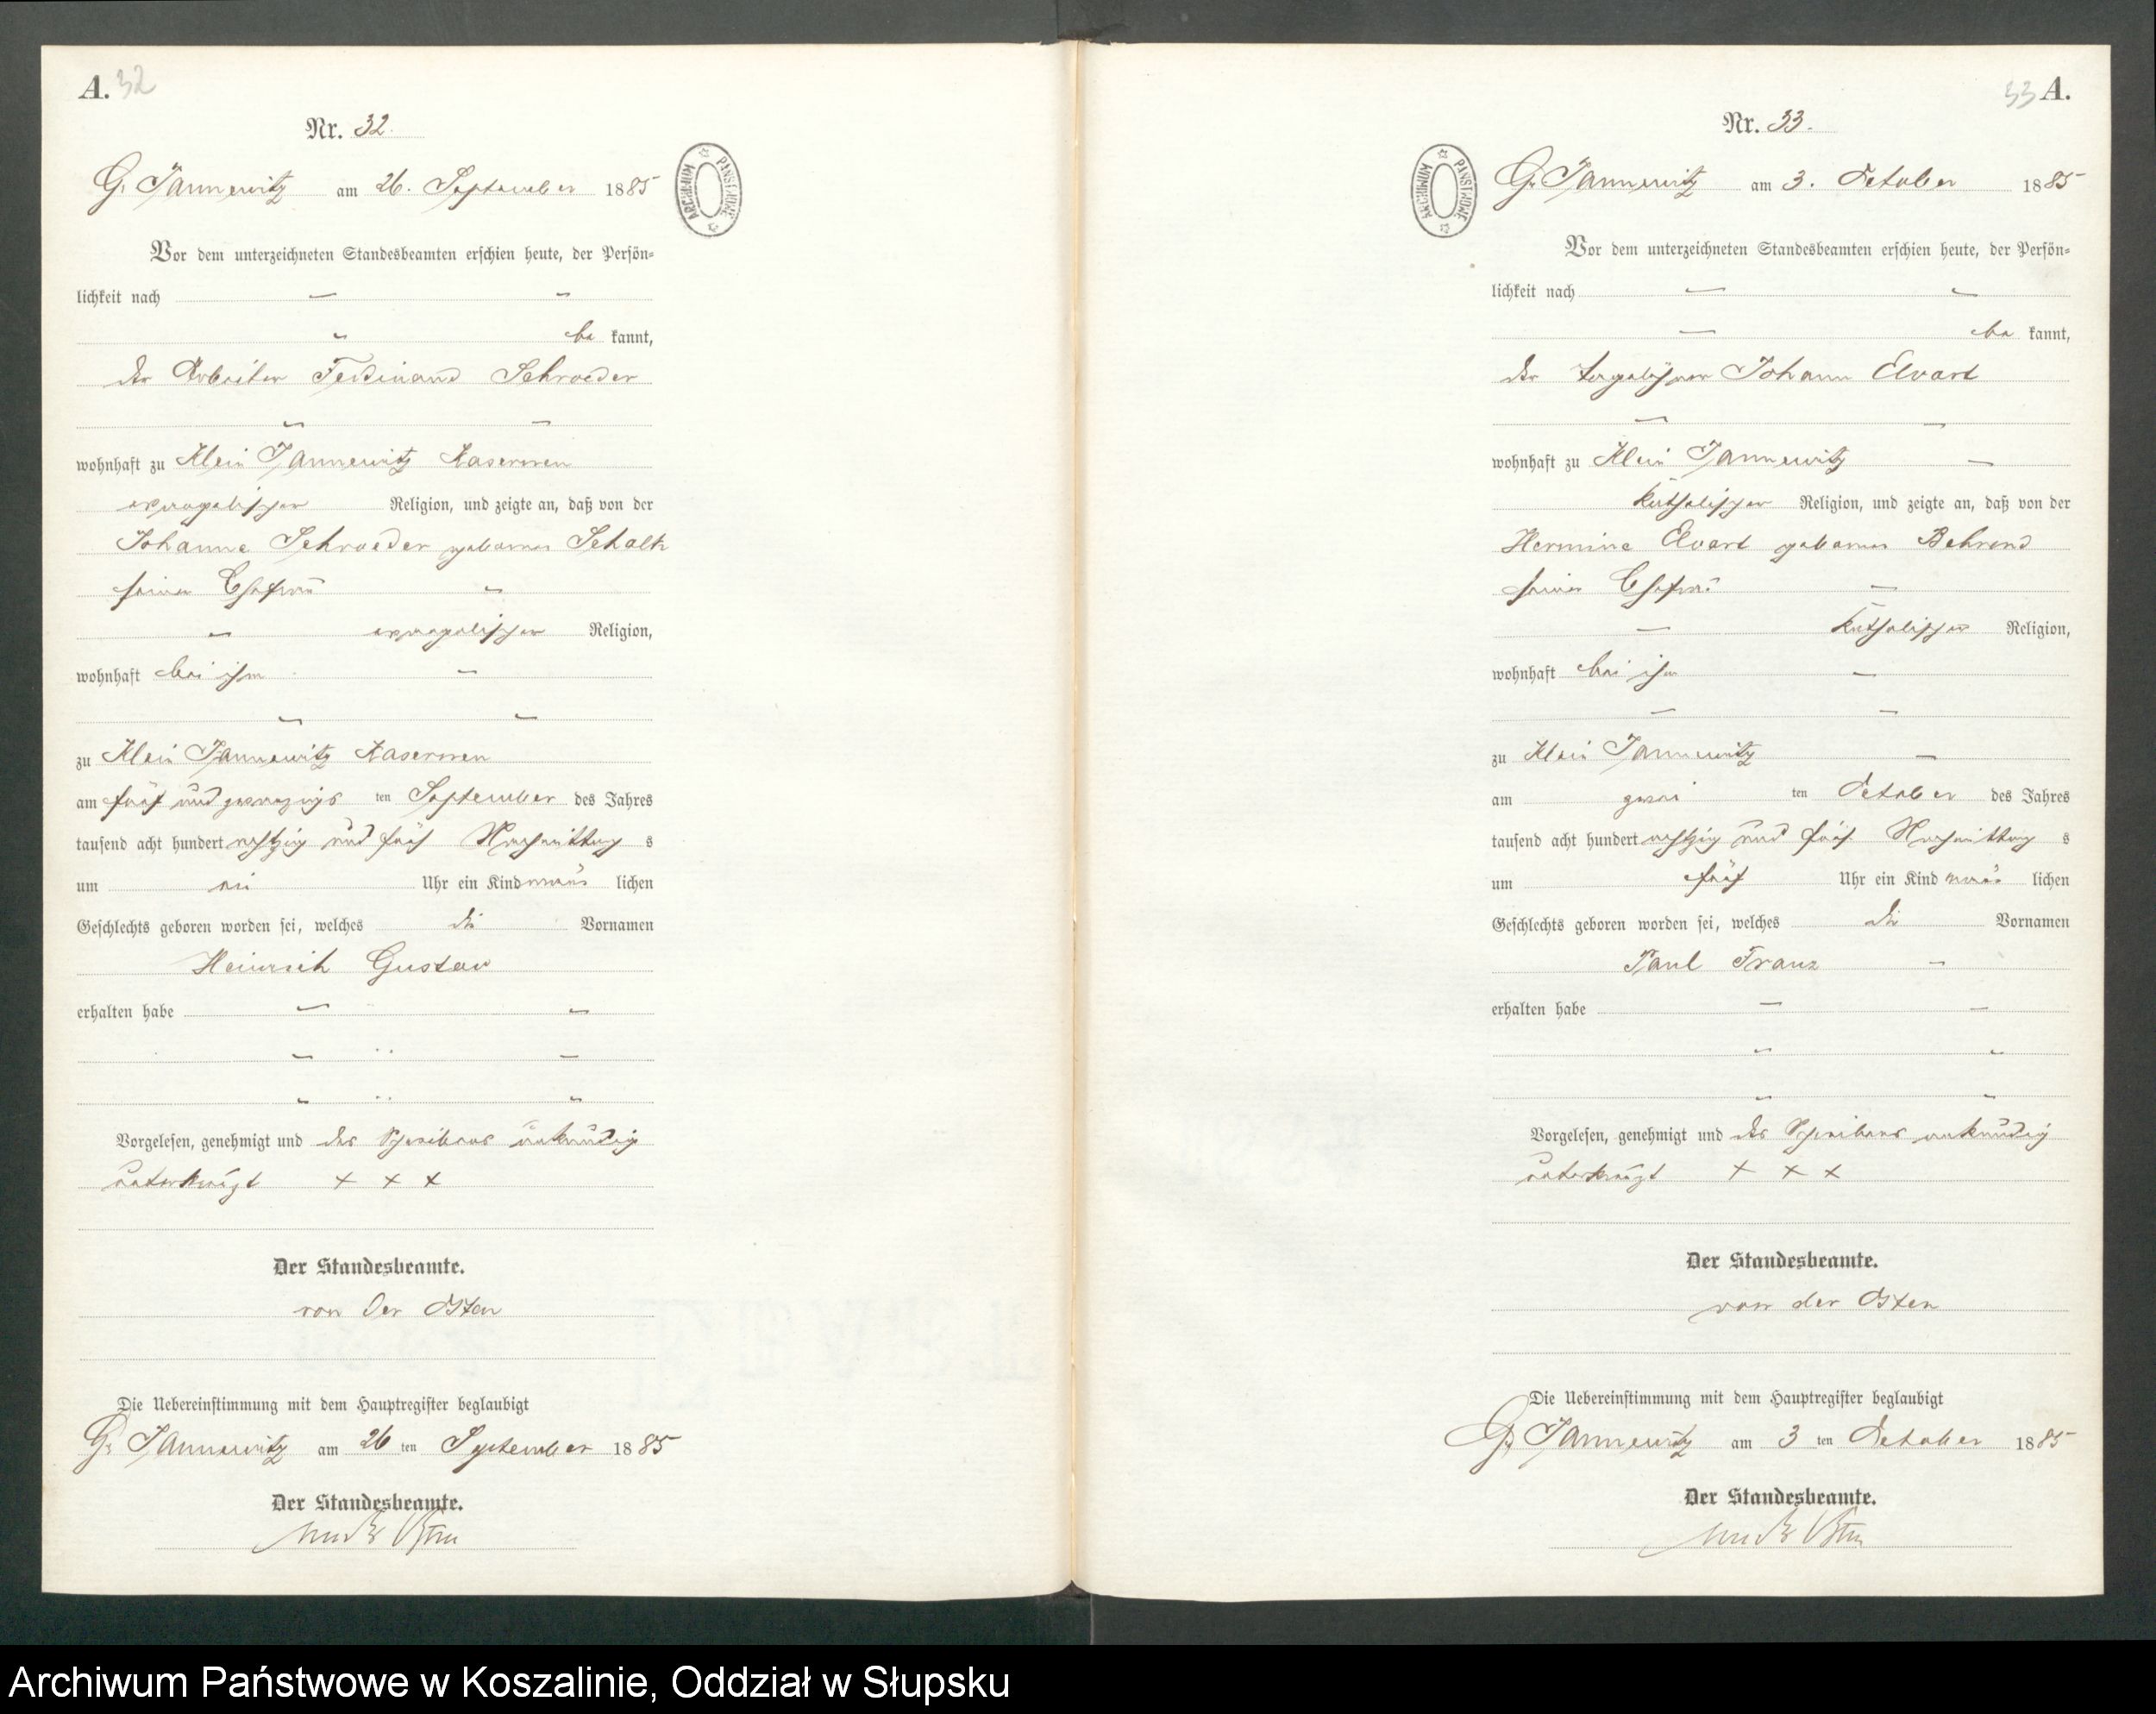 A. 32
Nr. 32.
Gr Jannewitz am 26. September 1885
Vor dem unterzeichneten Standesbeamten erschien heute, der Persön-
lichkeit nach
be kannt,
der Arbeiter Ferdinand Schroeder
wohnhaft zu Klein Jannewitz Kasernen
evangelischer Religion, und zeigte an, daß von der
Johanne Schroeder geborenen Scholk
seiner Ehefrau
evangelischer Religion,
wohnhaft bei ihm
zu Klein Jannewitz Kasernen
am fünf und zwanzigs ten September des Jahres
tausend acht hundert achtzig und fünf Nachmittag s
um Uhr ein Kind männ lichen
Geschlechts geboren worden sei, welches die Vornamen
Heinrich Gustav
erhalten habe
Vorgelesen, genehmigt und des Schreibens unkundig
unterkreuzt + + +
Der Standesbeamte.
von der Osten
Die Uebereinstimmung mit dem Hauptregister beglaubigt
Gr Jannewitz am 26 ten September 1885
Der Standesbeamte.
von der Osten
ARCHIWUM PAŃSTWOWE
33 A.
Nr. 33.
Gr Jannewitz am 3. October 1885
Vor dem unterzeichneten Standesbeamten erschien heute, der Persön-
lichkeit nach
be kannt,
der Tagelöhner Johann Evart
wohnhaft zu Klein Jannewitz
katholischer Religion, und zeigte an, daß von der
Hermine Evart geborenen Behrend
seiner Ehefrau
katholischer Religion,
wohnhaft bei ihm
zu Klein Jannewitz
am zwei ten October des Jahres
tausend acht hundert achtzig und fünf Nachmittag s
um fünf Uhr ein Kind männ lichen
Geschlechts geboren worden sei, welches die Vornamen
Paul Franz
erhalten habe
Vorgelesen, genehmigt und des Schreibens unkundig
unterkreuzt + + +
Der Standesbeamte.
von der Osten
Die Uebereinstimmung mit dem Hauptregister beglaubigt
Gr Jannewitz am 3 ten October 1885
Der Standesbeamte.
von der Osten
ARCHIWUM PAŃSTWOWE
Archiwum Państwowe w Koszalinie, Oddział w Słupsku